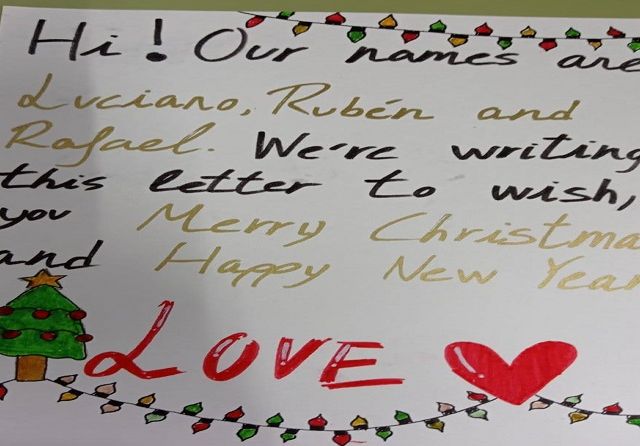 Hi! Our names are
Luciano, Rubén and
Rafael. We're writing
this letter to wish,
you Merry Christma
and Happy New Year
LOVE